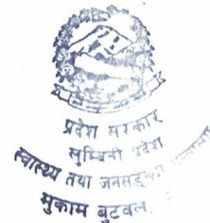 प्रदेश सरकार
लुम्बिनी प्रदेश
स्वास्थ्य तथा जनसङ्ख्या
मुकाम बुटवल